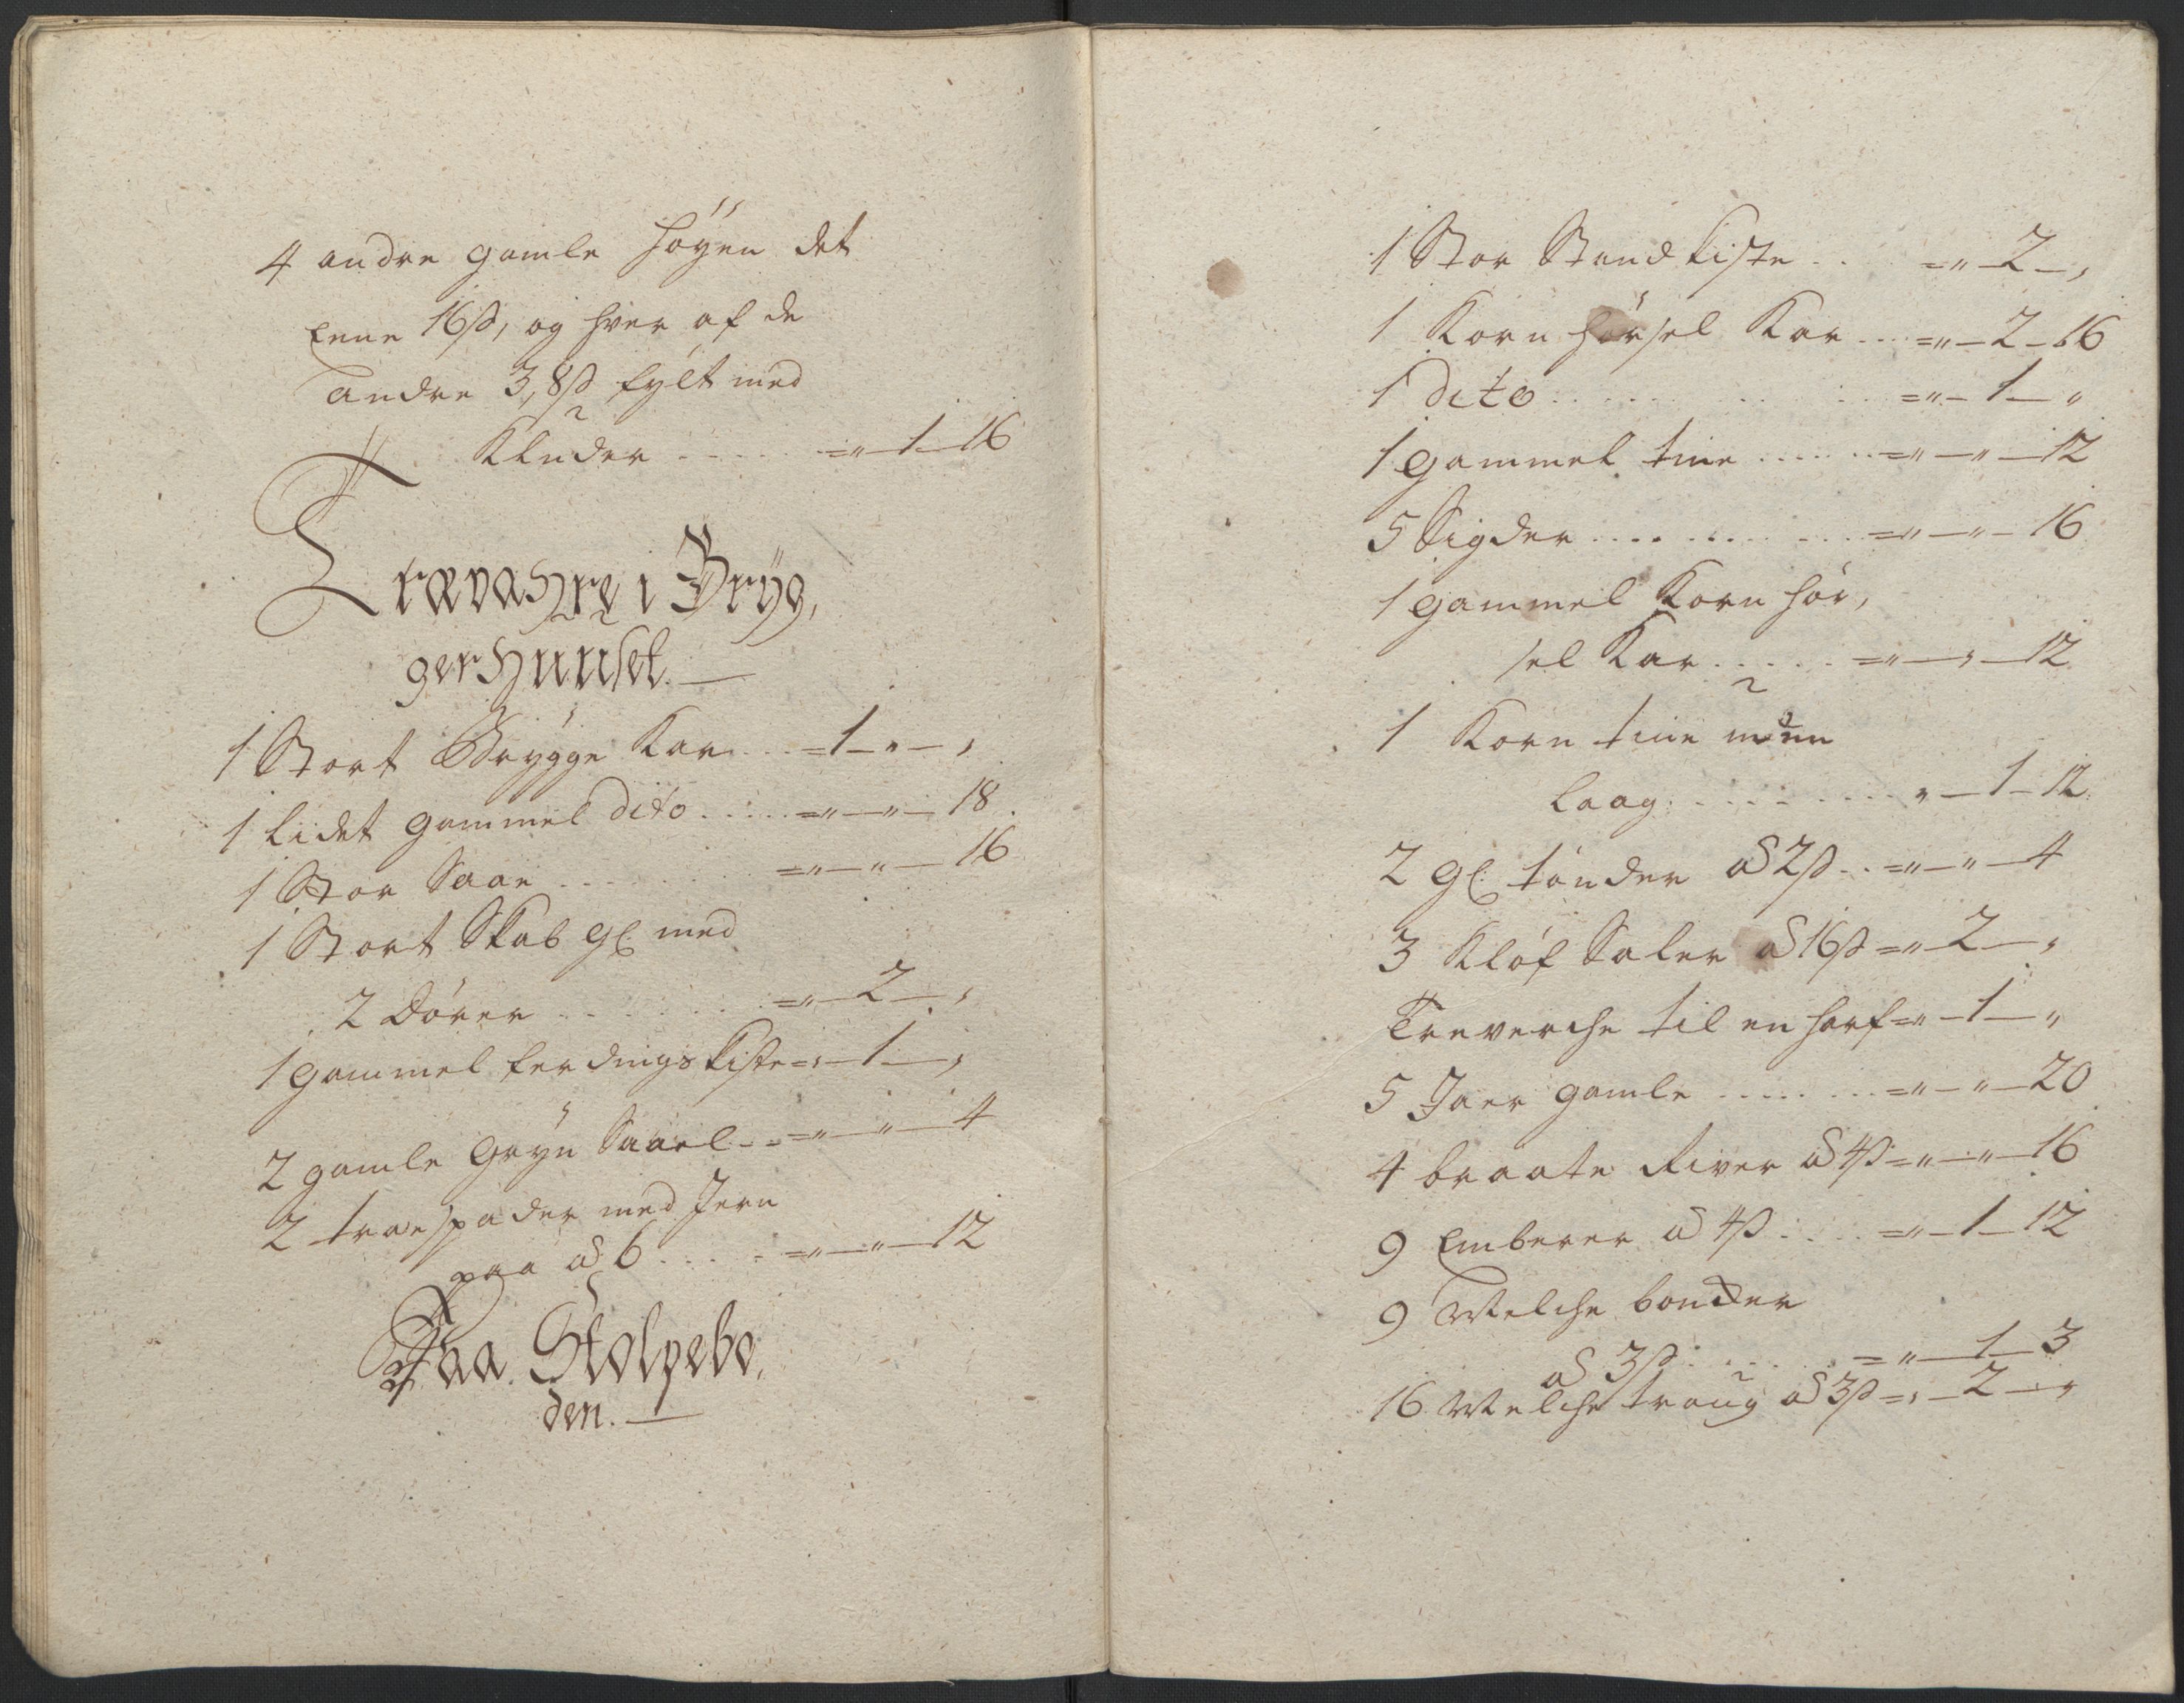 4 andre gamle Höÿen det
Eene 16ß, og hver af de
andre 3, 8ß fÿlt med
Kluder . . . . . =„—1—16
Trævahre i Brÿg,
gerhuuset.—
1 Stort Brÿgge Kar . . . =1—„—,
1 lidet gammel dito . . . . . =„—„—18.
1 Stor Saae . . . . . =„—„—16
1 Stort Skab gl. med
2 dörer . . . . . =„—2—,
1 gammel ferdings kiste =„—1—,
2 gamle Grÿn Saael . . =„—„—4
2 træspader med Jern
paa a 6 . . . . . =„—„—12
Paa Stolpebo,
den.—
1 Stor Stand kiste . . . =„—2—,
1 Korn hörsel Kar . . . =„—2—16
1 dito . . . . . . . =„—1—„
1 gammel tine . . . . . =„—„—12
5 Sigder . . . . . . . =„—„—16
1 gammel Korn hör,
sel Kar . . . . . =„—,—12
1 Korn tine uden
laag . . . . . . . „—1—12
2 gl. tönder a 2ß . . =„—„—4
3 Klöf Saler a 16ß =„—2—,
Treverche til en harf =„—1—„
5 Jaer gamle . . . . . . =„—„—20
4 braate River a 4ß =„—„—16
9 Emberer a 4ß . . . . =„—1—12
9 Melche bonder
a 3ß . . . . . =„—1—3
16 Melche traug a 3ß =,—2—„